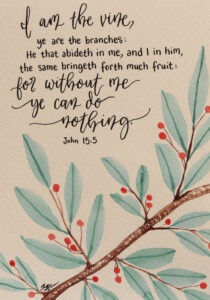 I am the vine,
ye are the branches:
He that abideth in me, and I in him,
the same bringeth forth much fruit:
for without me
ye can do
nothing.
John 15:5